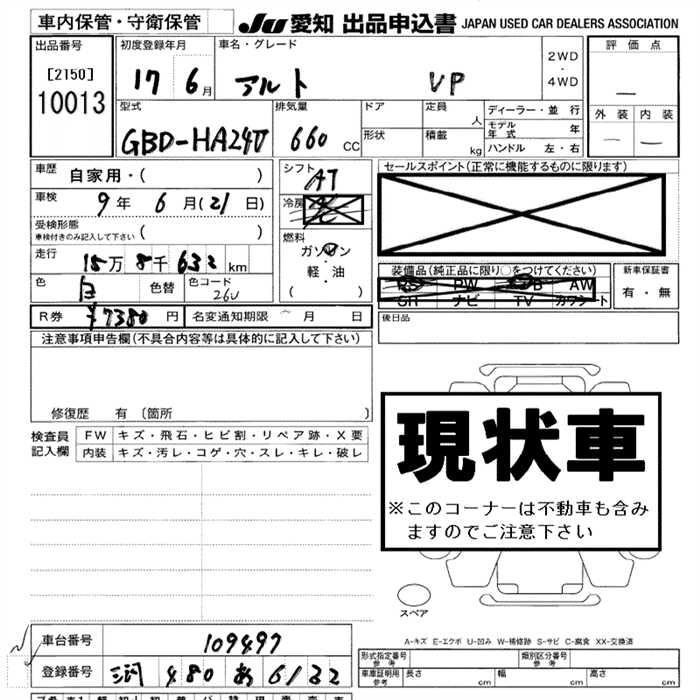 車内保管・守衛保管
JU 愛知 出品申込書 JAPAN USED CAR DEALERS ASSOCIATION
出品番号
[2150]
10013
初度登録年月
17 6月
車名・グレード
アルト VP
2WD
・
4WD
評価点
—
外装 内装
— —
型式
GBD-HA24V
排気量
660 CC
ドア
形状
定員 人
積載 kg
ディーラー・並行
モデル年式 年
ハンドル 左・右
車歴 自家用・( )
車検 9年 6月(21日)
受検形態
車検付きのみ記入して下さい ( )
走行 15万 8千 632 km
色 白 色替 色コード 26U
シフト AT
冷房
燃料
ガソリン
・
軽・油
( )
セールスポイント(正常に機能するものに限ります)
装備品(純正品に限り○をつけてください)
PS PW AB AW
SR ナビ TV カワシート
新車保証書
有・無
R券 ¥7380 円 名変通知期限 月 日
後日品
注意事項申告欄(不具合内容等は具体的に記入して下さい)
修復歴 有〔箇所 〕
検査員記入欄
FW キズ・飛石・ヒビ割・リペア跡・X要
内装 キズ・汚レ・コゲ・穴・スレ・キレ・破レ
現状車
※このコーナーは不動車も含み
ますのでご注意下さい
スペア
A-キズ E-エクボ U-凹み W-補修跡 S-サビ C-腐食 XX-交換済
車台番号 109497
登録番号 三河 480
形式指定番号
参考
類別区分番号
参考
車庫証明用
参考
長さ cm 幅 cm 高さ cm